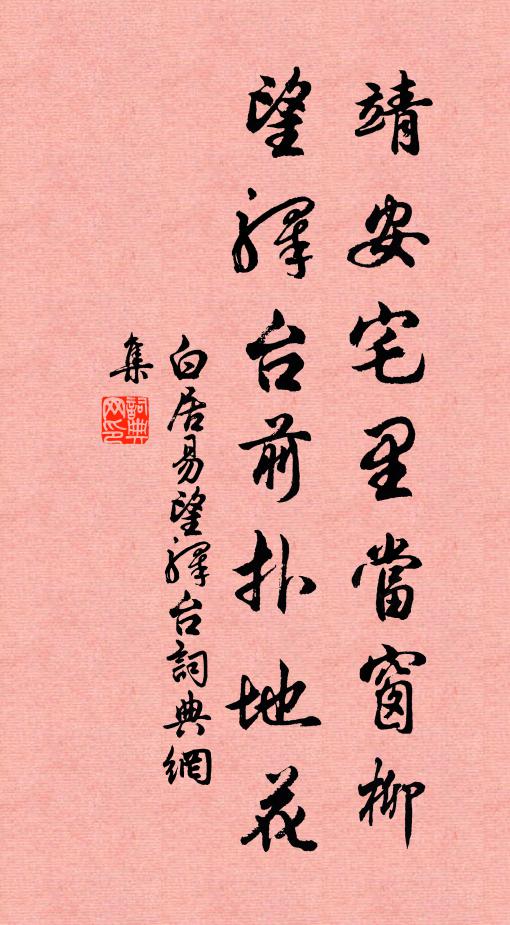 靖安宅里當窗柳
望驛台前扑地花
白居易望驛台詞典網
集
詞典
网印